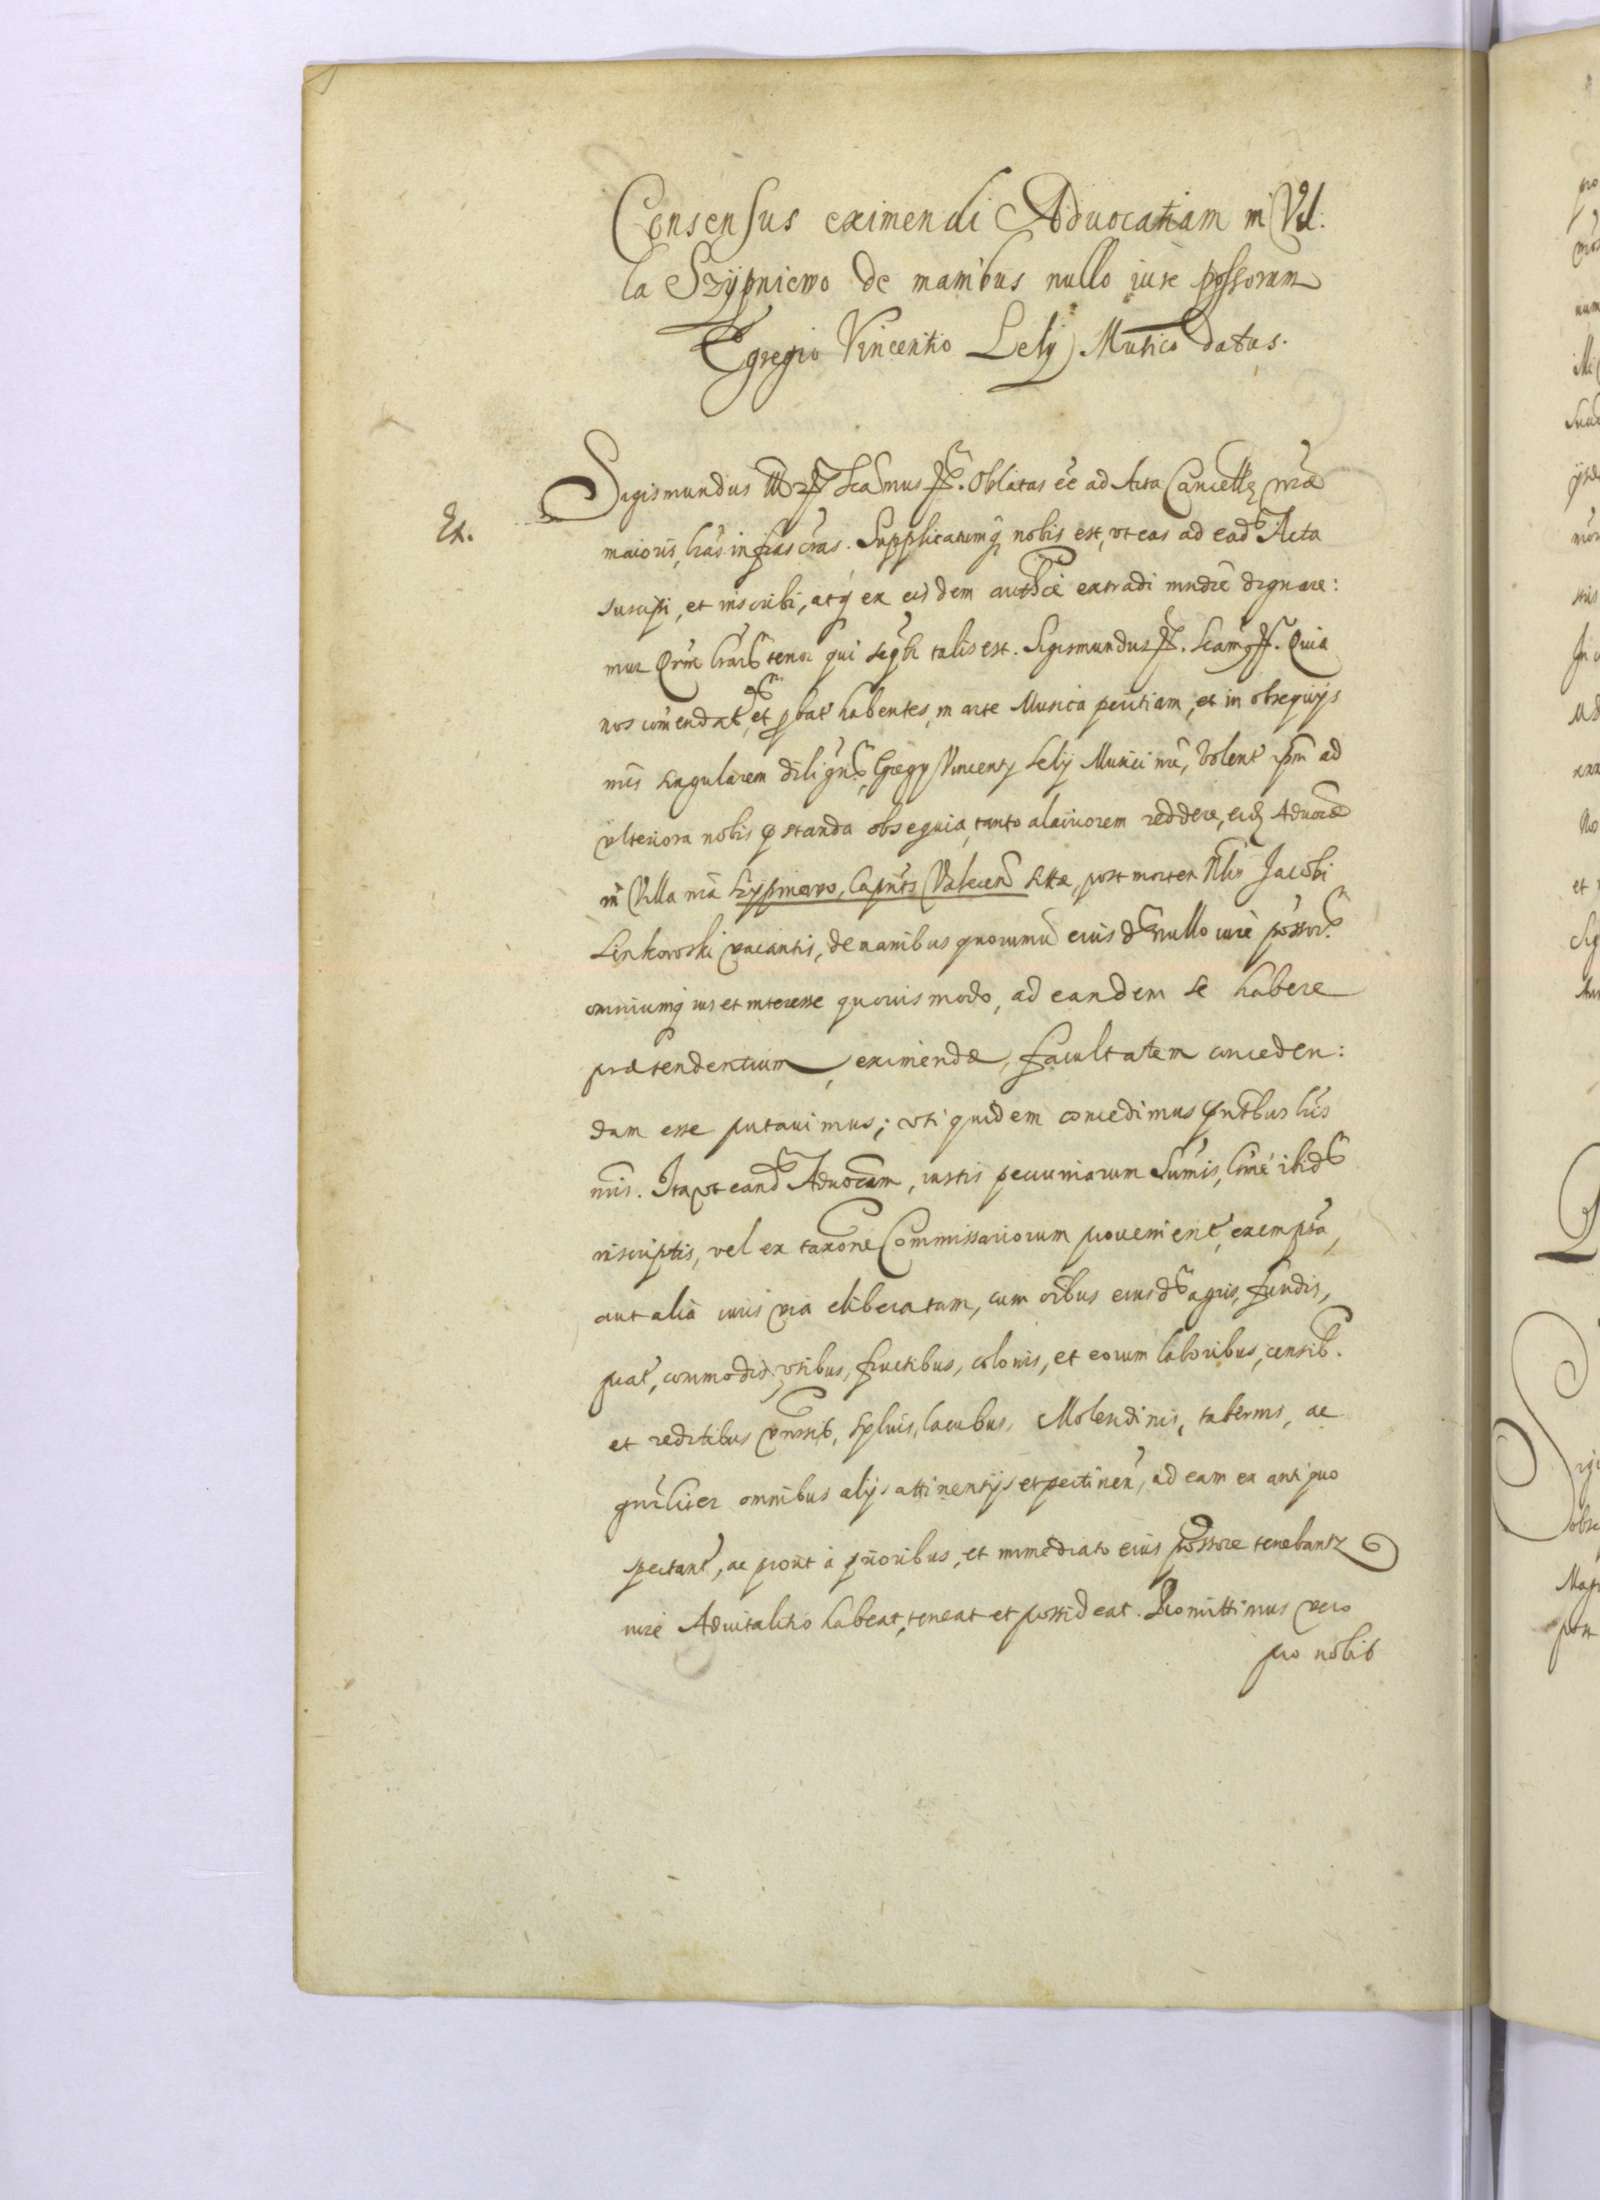 Consensus eximendi Aduocatiam in Vil:
la Szÿpniewo de manibus nullo iure possorum
Egregio Vincentio Lelÿ Musico datus.
Sigismundus III Oblatas eē ad Acta Cancellæ nr̃æ
Ex.
maioris, lrãs infras cr̃as. Supplicatumq nobis est, vt eas ad ead Acta
suscipi, et inscribi, atq ex eisdem authcẽ extradi mndrẽ dignare:
mur tenor qui seqtr talis est. Sigismundus Quia
nos comendat, et habentes, in arte Musica peritiam, et in obsequijs
nris singularem Vincenty Lelij Musici nri, volentes ipm ad
vlteriora nobis pstanda obsequia, tanto alacriorem reddere, eid Aduocæ
in Villa nrã Szypniewo, Capnts Valecen sitæ, post mortem Jacobi
Linkowski vacantis, de manibus quorumuis eius d nullo iure possor
omniumq ius et interesse quouis modo, ad eandem se habere
prætendentium, eximendæ, facultatem conceden:
dam esse putauimus; vti quidem concedimus pntibus lris
nris. Ita vt eand Aduocam, iustis pecuniarum sumis, ltme ibid
inscriptis, vel ex taxone Commissariorum prouenient, exempta,
aut alia iuris via eliberatam, cum oibus eiusd agris, fundis,
prat, commodis, vtibus, fructibus, colonis, et eorum laboribus, censib.
et reditibus vnisib, syluis, lacubus, Molendinis, tabernis, ac
gnrliter omnibus alijs attinentijs et pertinen, ad eam ex antiquo
spectant, ac prout à prioribus, et immediato eius possore tenebantr
iure Aduitalitio habeat, teneat et possideat. Promittimus vero
pro nobis